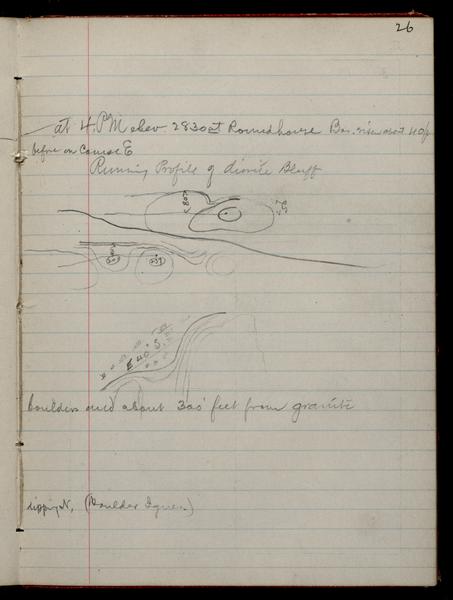 26
at 4 PM elev 2830 at Roundhouse Bar. rise about 40/
before on Course E
Running Profile of diorite Bluff
E 40 S.
boulders and about 300' feet from granite
dipping N. (Boulder Igneo.)